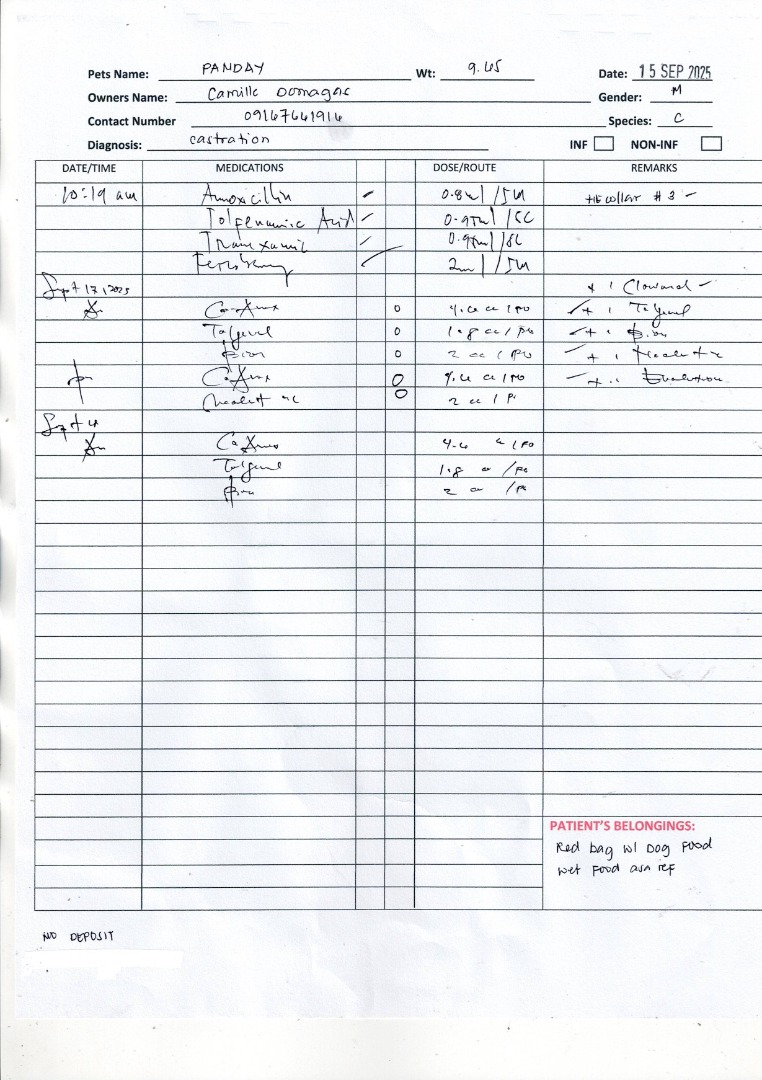 Pets Name: PANDAY Wt: 9.45 Date: 15 SEP 2025
Owners Name: Camille Domagas Gender: M
Contact Number 09167641914 Species: C
Diagnosis: castration INF NON-INF
DATE/TIME MEDICATIONS DOSE/ROUTE REMARKS
10:19 am Amoxicillin 0.8ml /IM +1 E collar #3
Tolfenamic Acid 0.95ml /SC
Tranexamic 0.95ml /SC
2ml /IM
Sept 17, 2025 + 1
Am Co-Amox 0 4.6 cc / PO + 1 Tolfenol
Tolfenol 0 1.8 cc / PO + 1
0 2 cc / PO + 1
pm Co-Amox 0 4.6 cc / PO + 1
0 2 cc / P
Sept
Am Co Amox 4.6 cc / PO
Tolfenol 1.8 cc / PO
2 cc / PO
PATIENT'S BELONGINGS:
Red bag w/ Dog Food
wet food asn ref
NO DEPOSIT